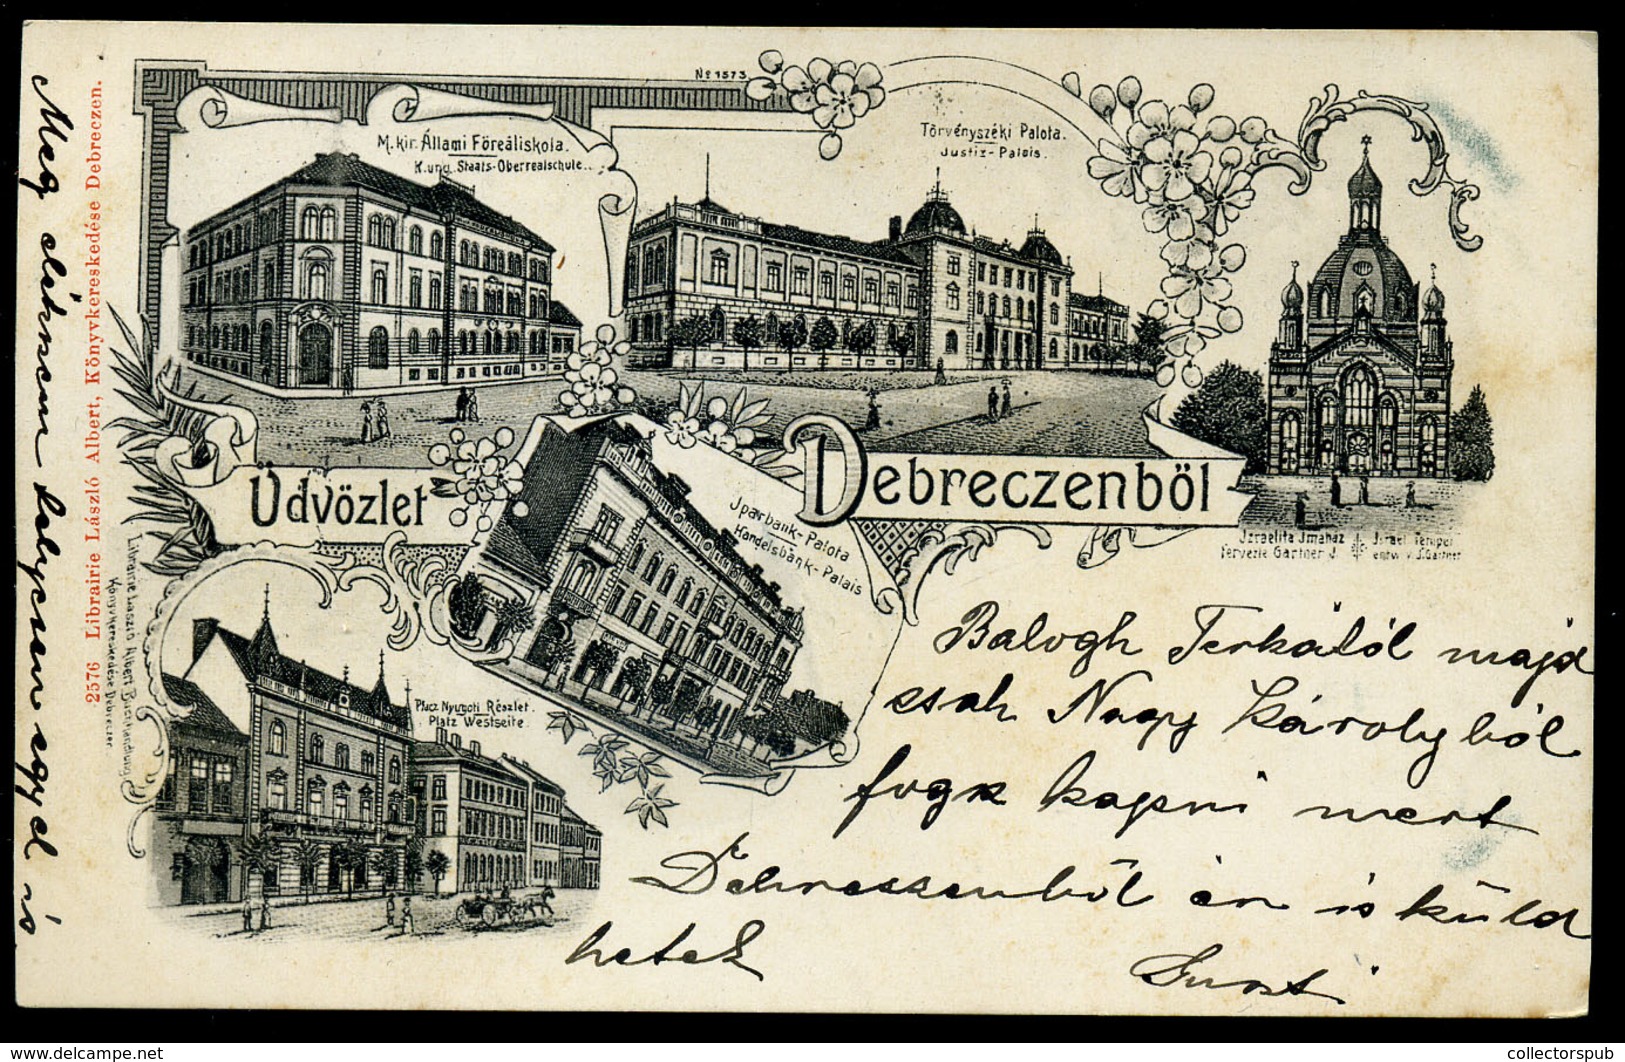 № 1573
M. kir. Állami Föreáliskola.
K. ung. Staats-Oberrealschule.
Törvényszéki Palota.
Justiz-Palais.
Üdvözlet
Debreczenböl
Jparbank-Palota
Handelsbank-Palais
Jzraelita Jmaház
Tervezte Gartner J.
Israel Tempel
entw. v. J. Gartner
Piacz Nyugoti Részlet.
Platz Westseite.
Librairie László Albert Buchhandlung
Könyvkereskedése Debreczen
2576 Librairie László Albert, Könyvkereskedése Debreczen.
Balogh Terkától majd
csak Nagy Károlyból
fogsz kapni mert
Debreczenből én is küld
hetek
Guszti
Meg
egyel is
collectorspub